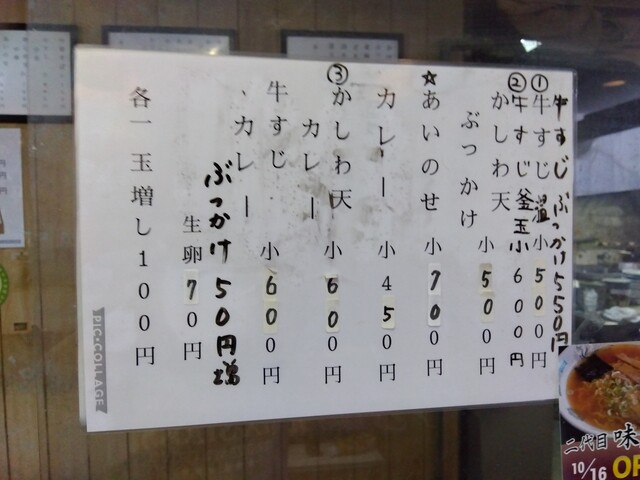 牛すじぶっかけ550円
①牛すじ温小500円
②牛すじ釜玉小600円
かしわ天
ぶっかけ小500円
☆あいのせ小700円
カレー小450円
③かしわ天
カレー小600円
牛すじ
カレー小600円
ぶっかけ50円増
生卵70円
各一玉増し100円
PIC·COLLAGE
二代目味
10/16 OP